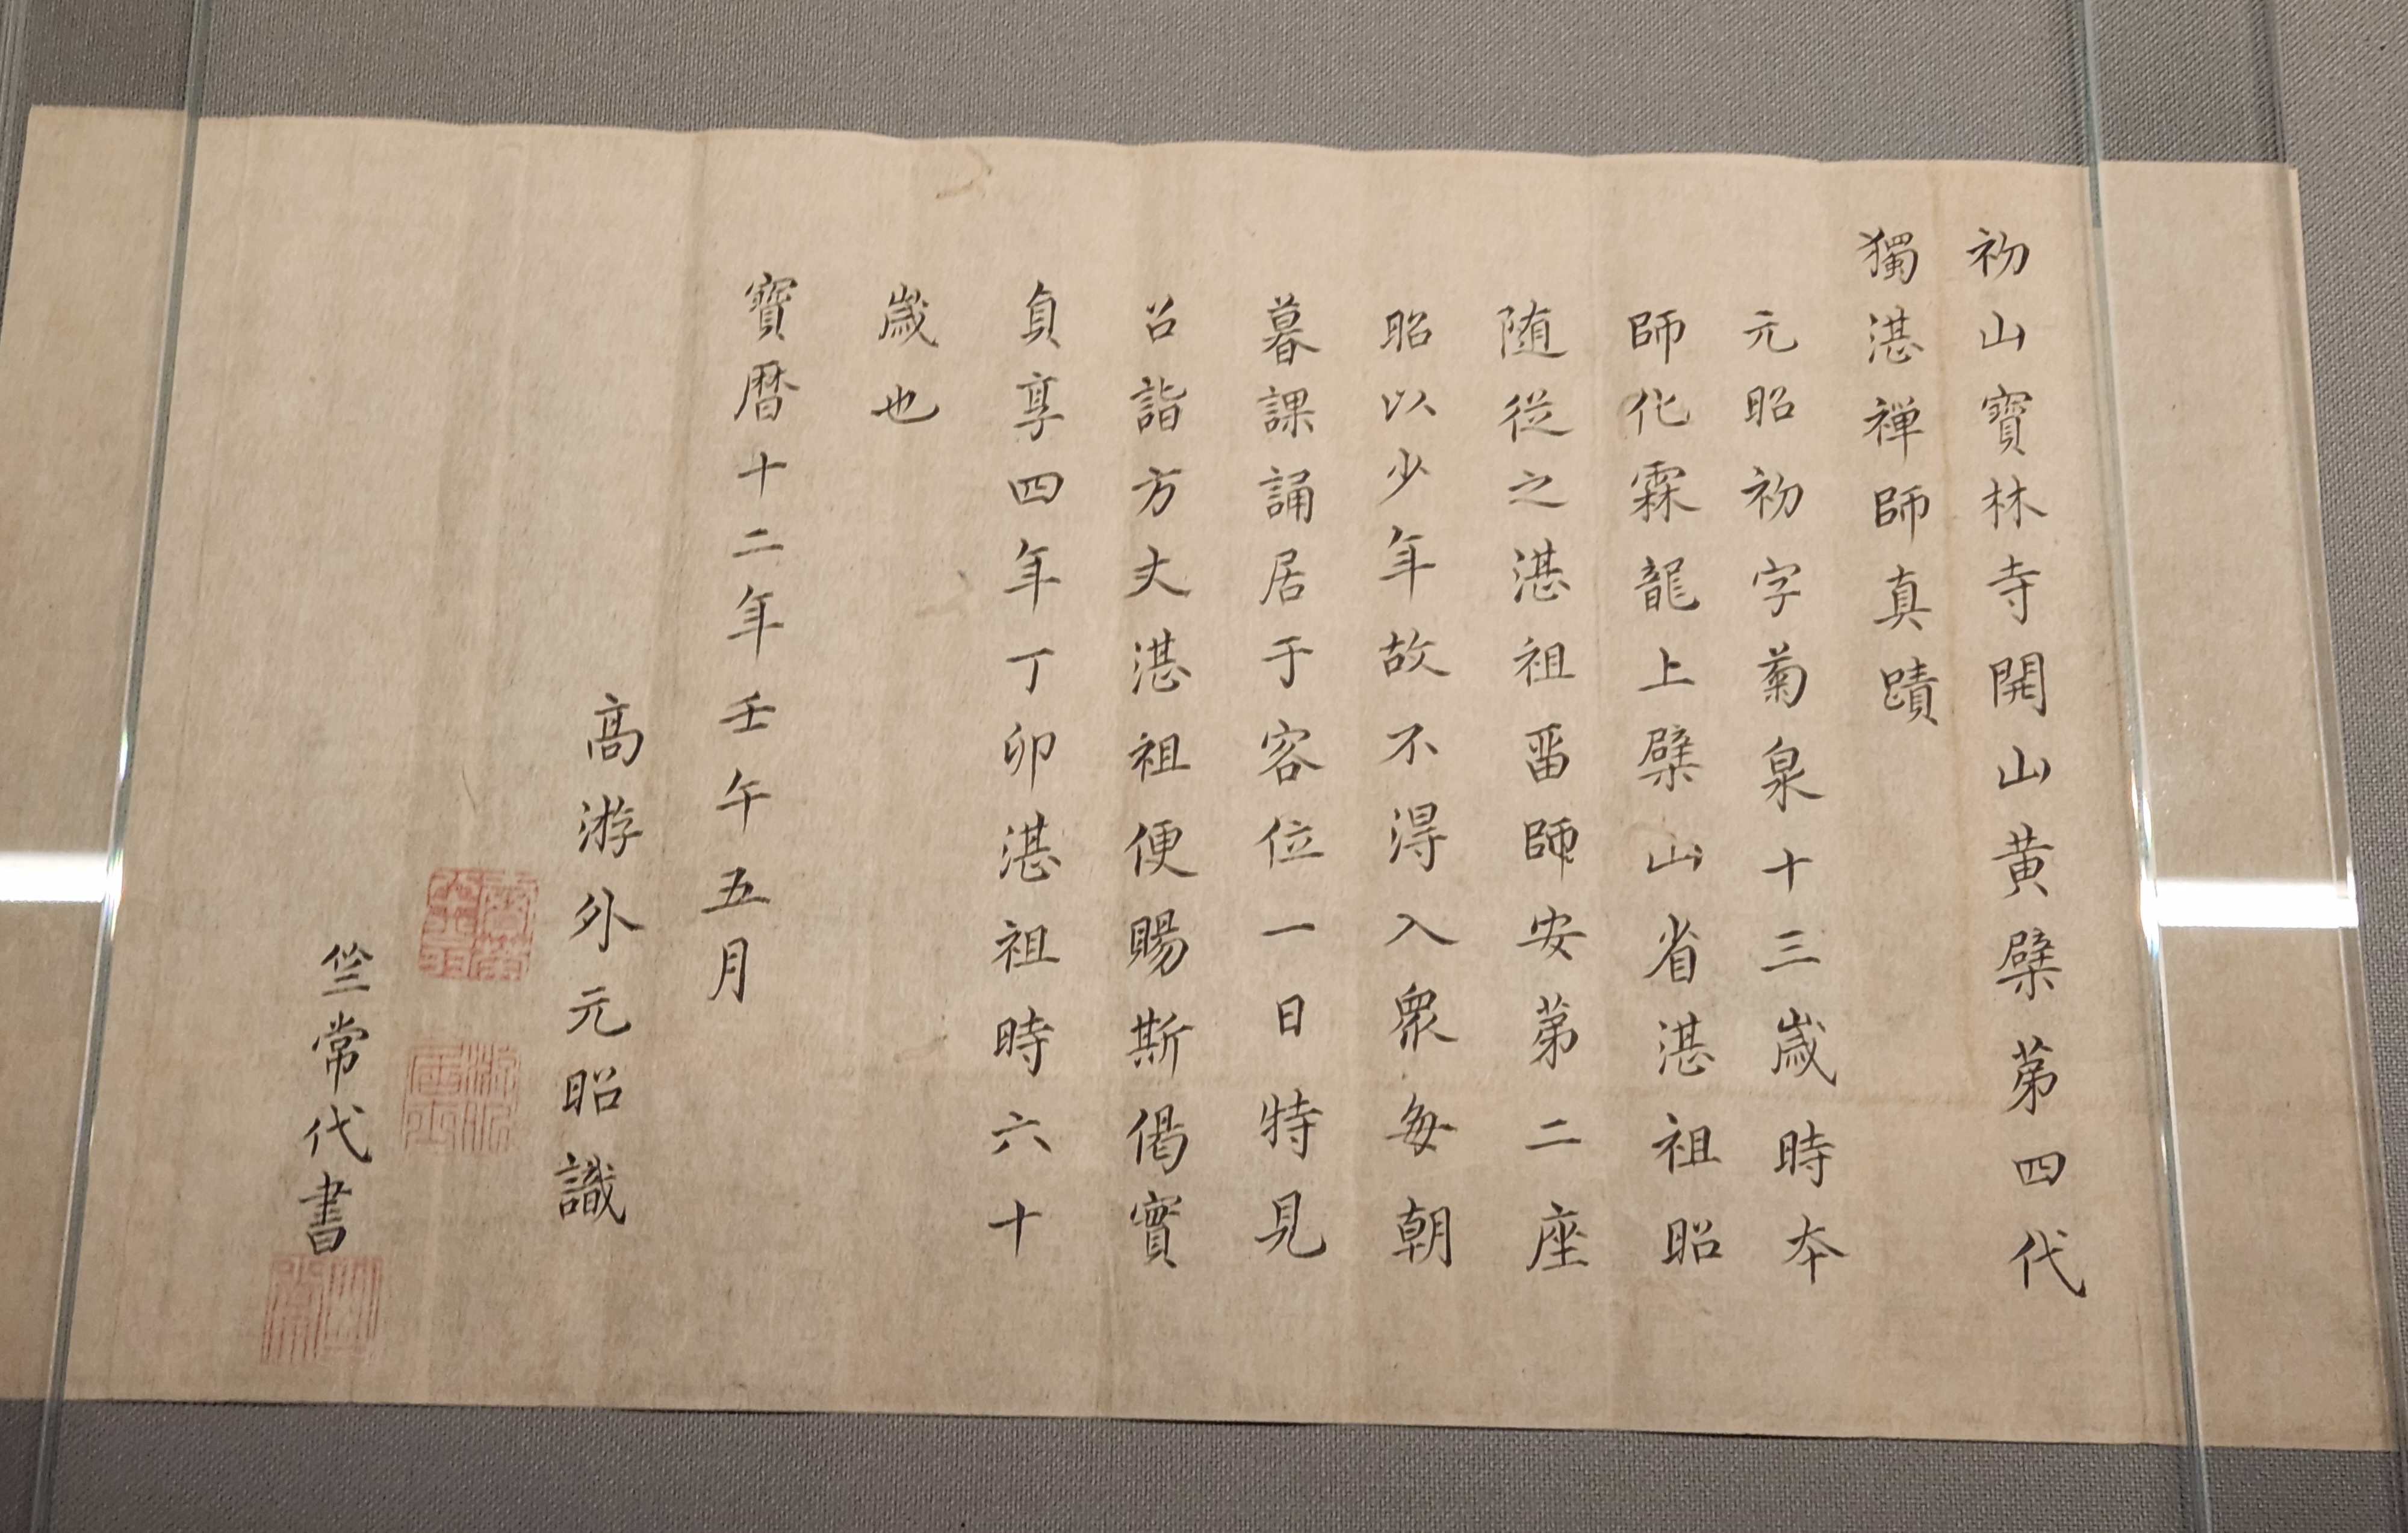 初山寳林寺開山黄檗第四代
獨湛禅師真蹟
元昭初字菊泉十三歳時本
師化霖龍上檗山省湛祖昭
随従之湛祖畱師安苐二座
昭以少年故不淂入衆每朝
暮課誦居于客位一日特見
召詣方丈湛祖便賜斯偈實
貞享四年丁卯湛祖時六十
歳也
寳暦十二年壬午五月
高游外元昭識
竺常代書